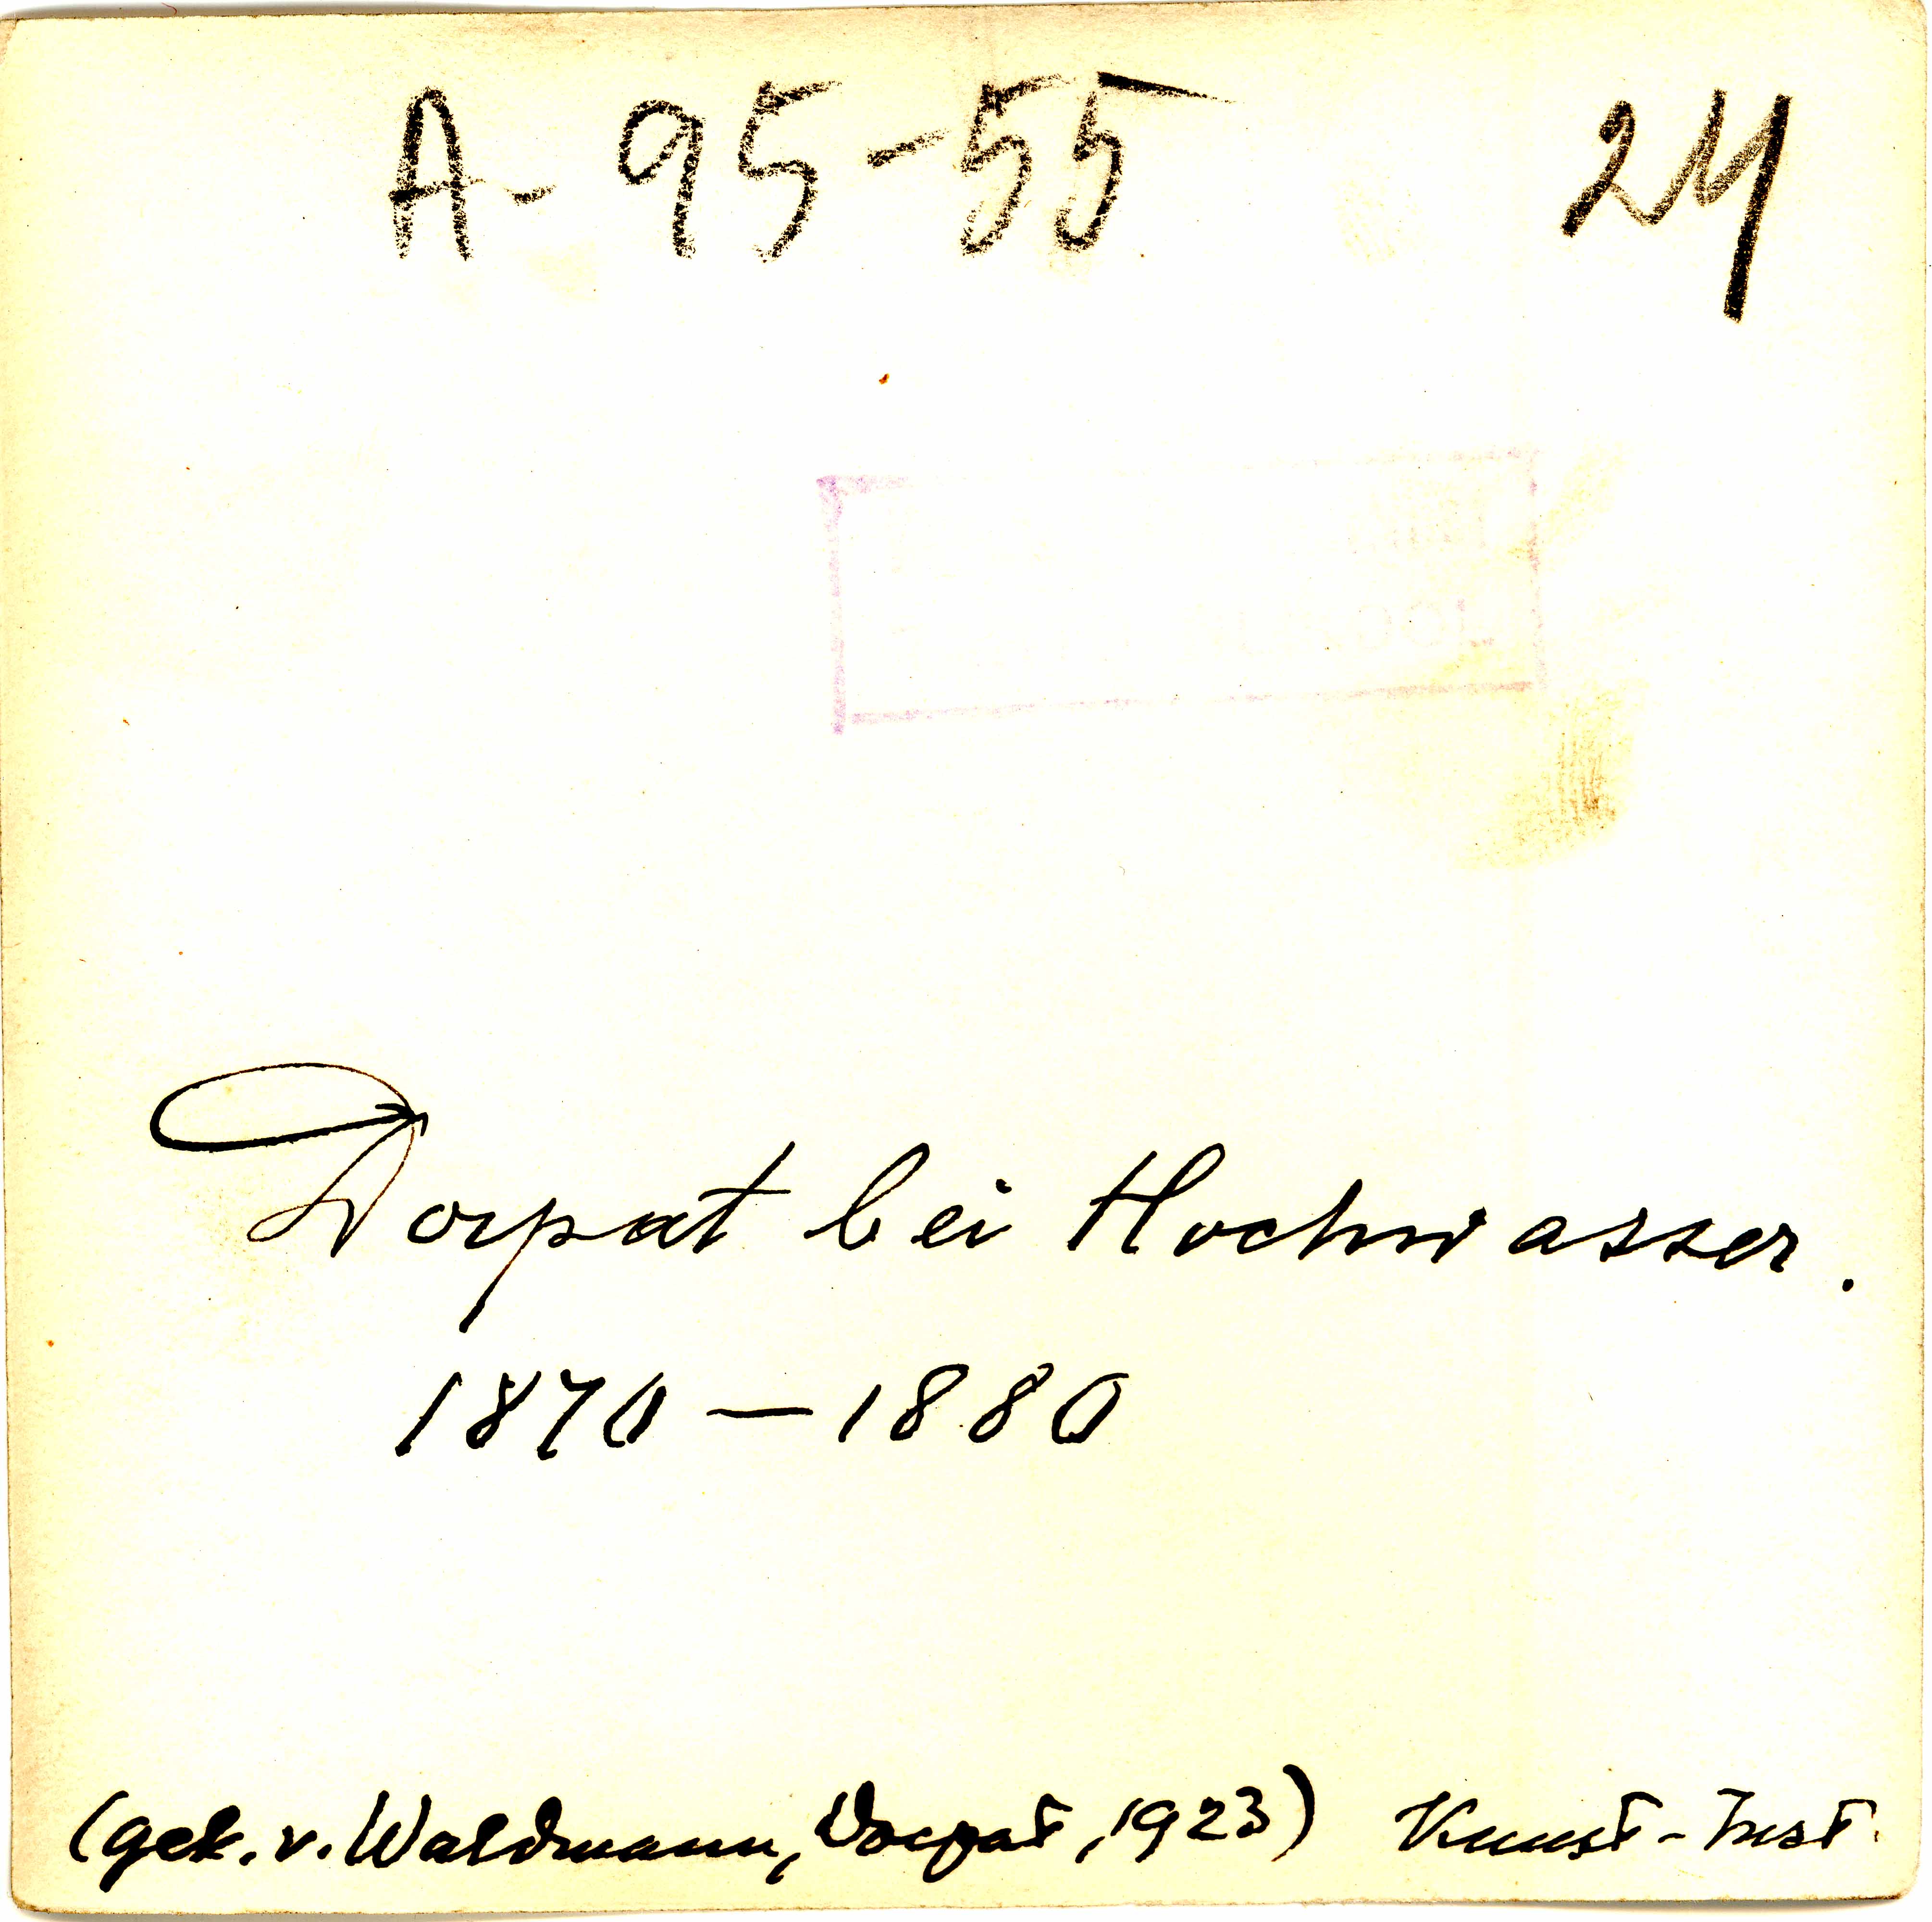 A-95-55 24
Dorpat bei Hochwasser.
1870 — 1880
(gek. v. Waldmann, Dorpat, 1923) Kunst-Inst.